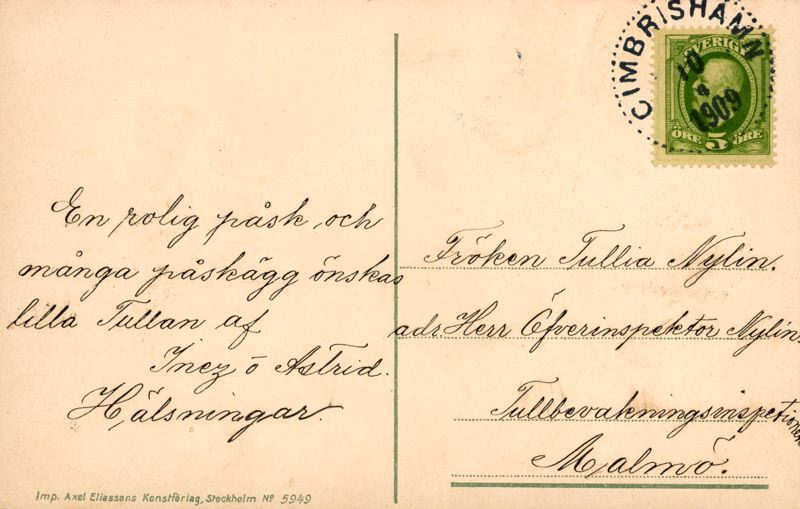 CIMBRISHAMN
10
4
1909
SVERIGE
ÖRE 5 ÖRE
En rolig påsk och
många påskägg önskas
lilla Tullan af
Inez o Astrid.
Hälsningar.
Fröken Tullia Nylin.
adr. Herr Öfverinspektor Nylin.
Tullbevakningsinspetionen
Malmö.
Imp. Axel Eliassons Konstförlag, Stockholm No 5949